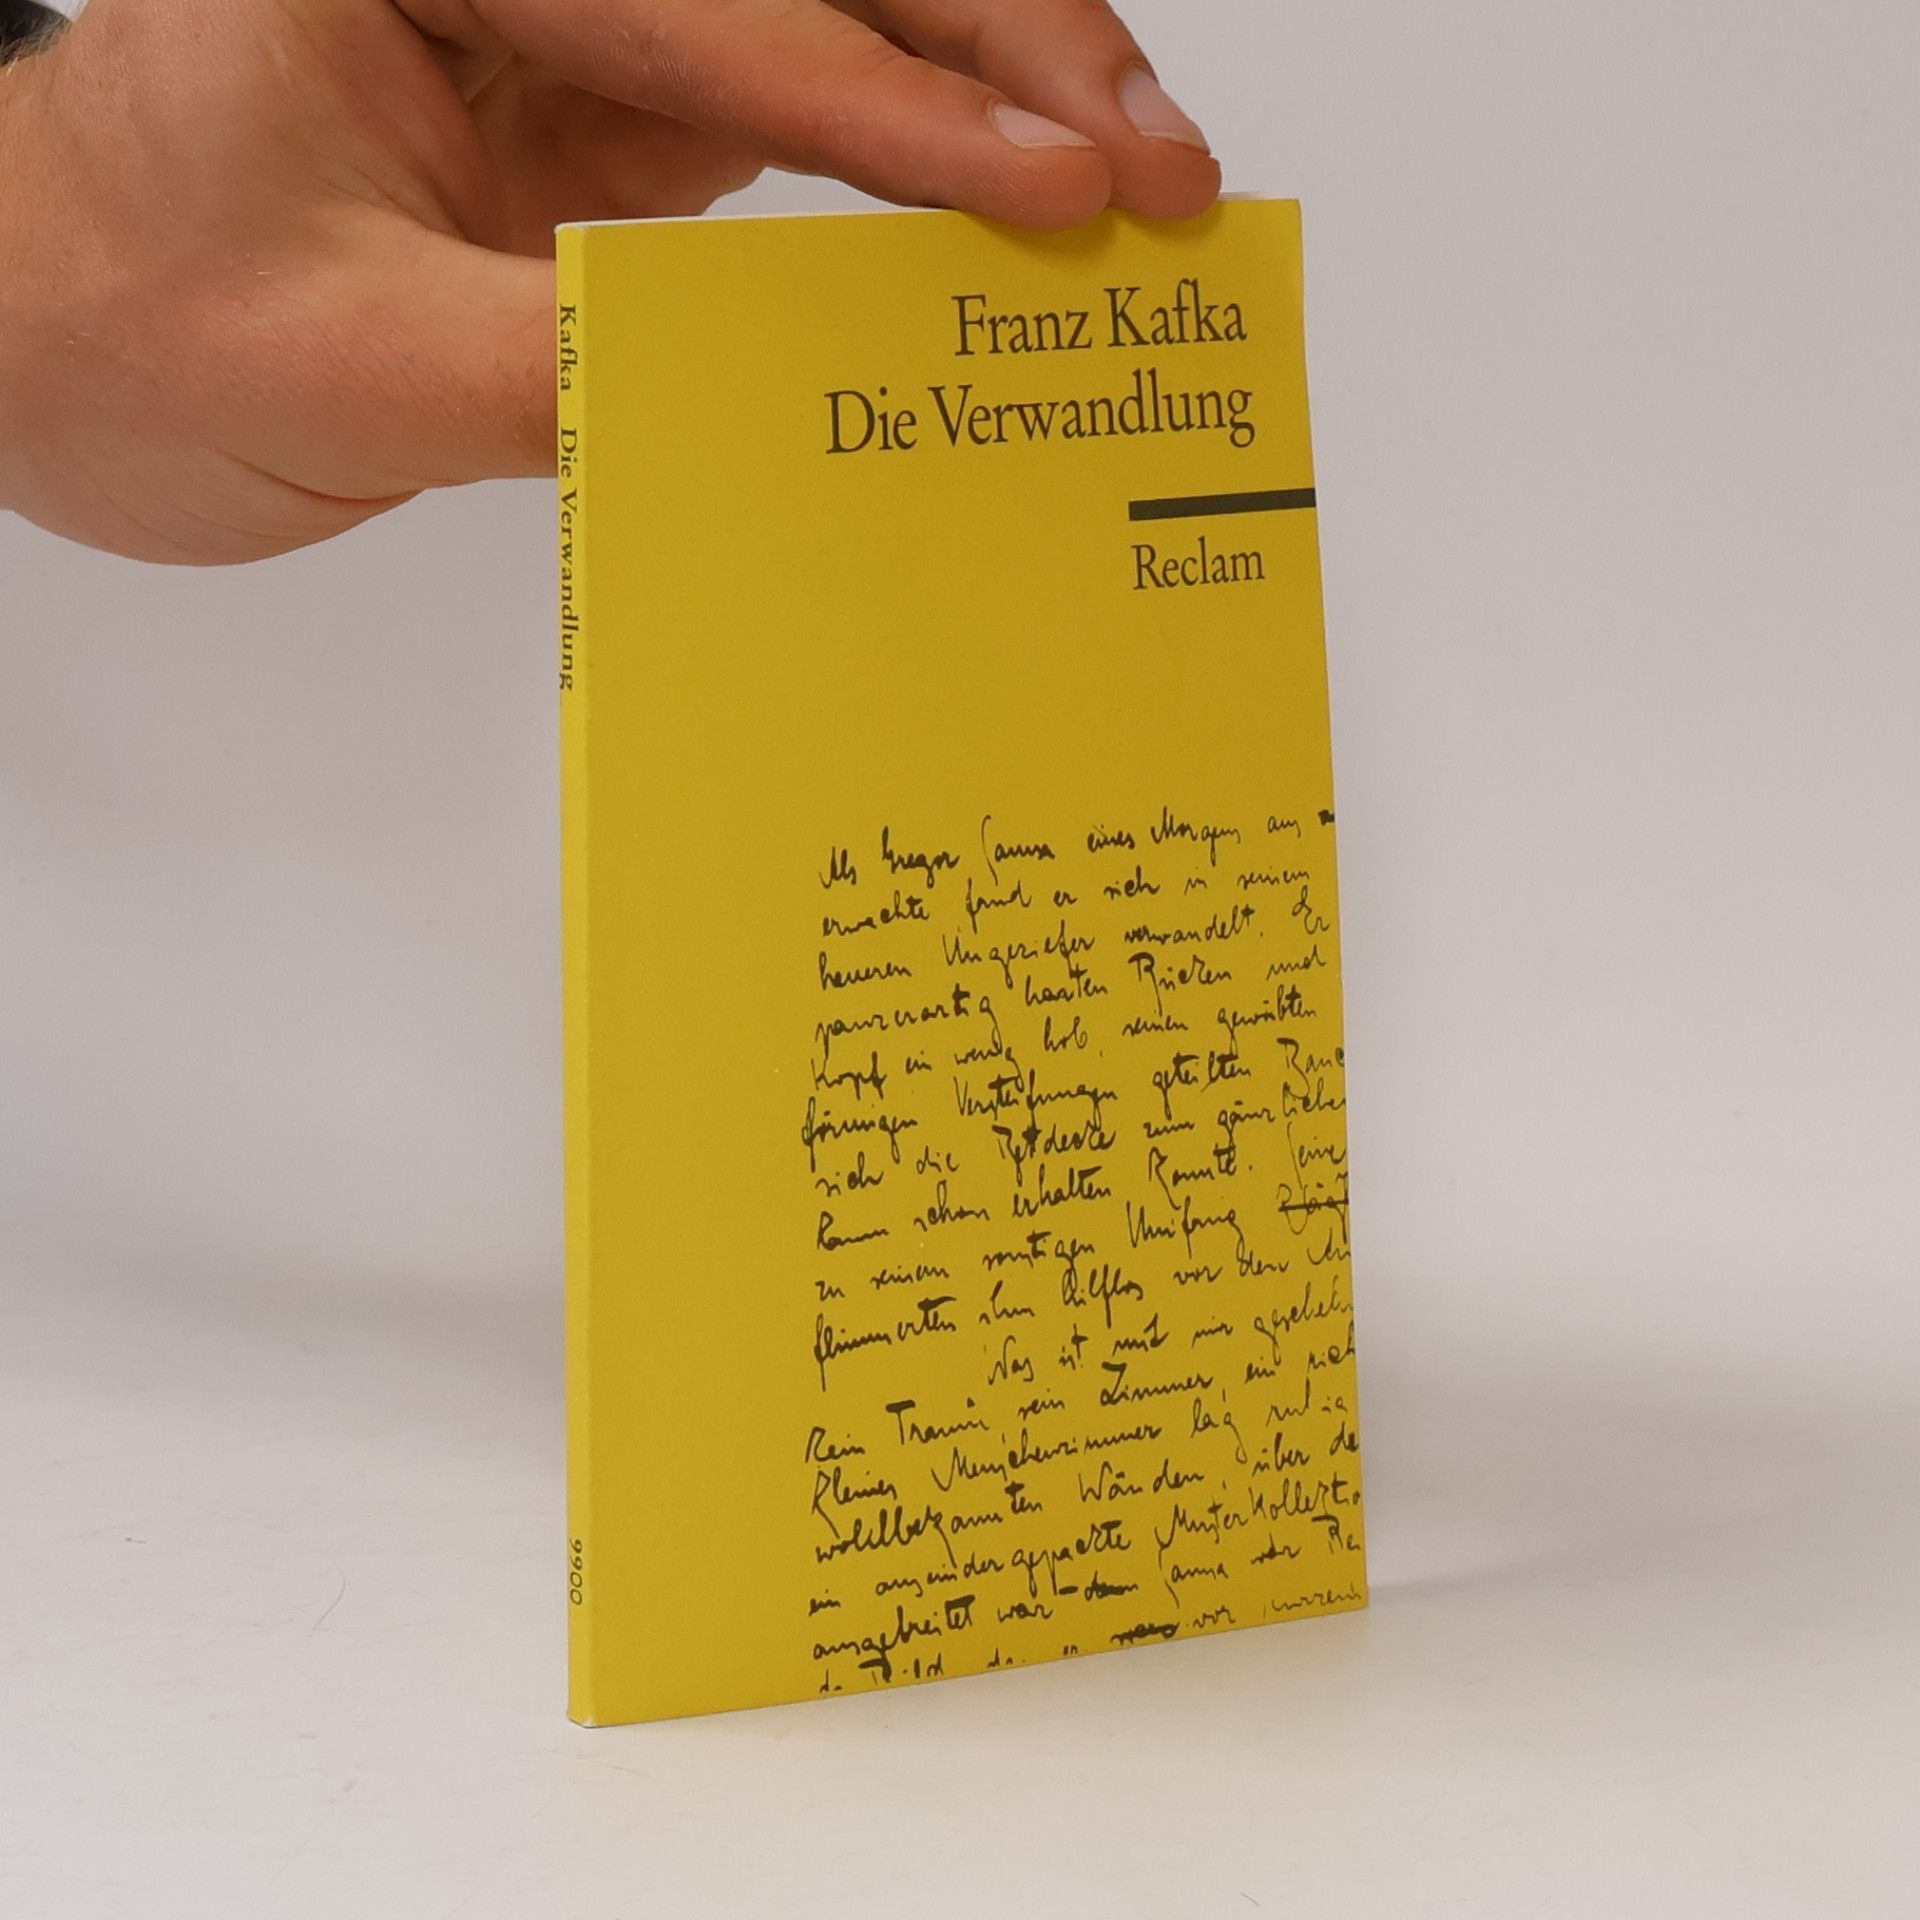 Franz Kafka
Die Verwandlung
Reclam
Kafka Die Verwandlung
9900
Als Gregor Samsa eines Morgens aus
erwachte fand er sich in seinem
heueren Ungeziefer verwandelt. Er
panzerartig harten Rücken und
Kopf ein wenig hob, seinen gewölbten
förmigen Versteifungen geteilten Bauc
sich die Bettdecke zum gänzlichen
kaum schon erhalten konnte. Seine
zu seinem sonstigen Umfang
flimmerten ihm hilflos vor den Au
Was ist mit mir geschehn
kein Traum, sein Zimmer, ein rich
kleines Menschenzimmer lag ruhig
wohlbekannten Wänden, über de
ein auseindergepackte Musterkollektio
ausgebreitet war Samsa war Rei
vor kurzem